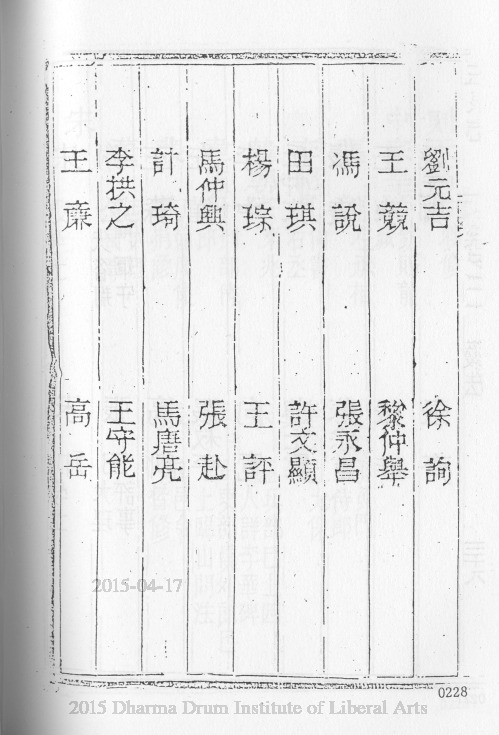 劉元吉 徐詢
王兢 黎仲舉
馮說 張永昌
田琪 許文顯
楊琮 王評
馬仲興 張赴
計琦 馬磨亮
李拱之 王守能
王廉 高岳
2015-04-17
0228
2015 Dharma Drum Institute of Liberal Arts